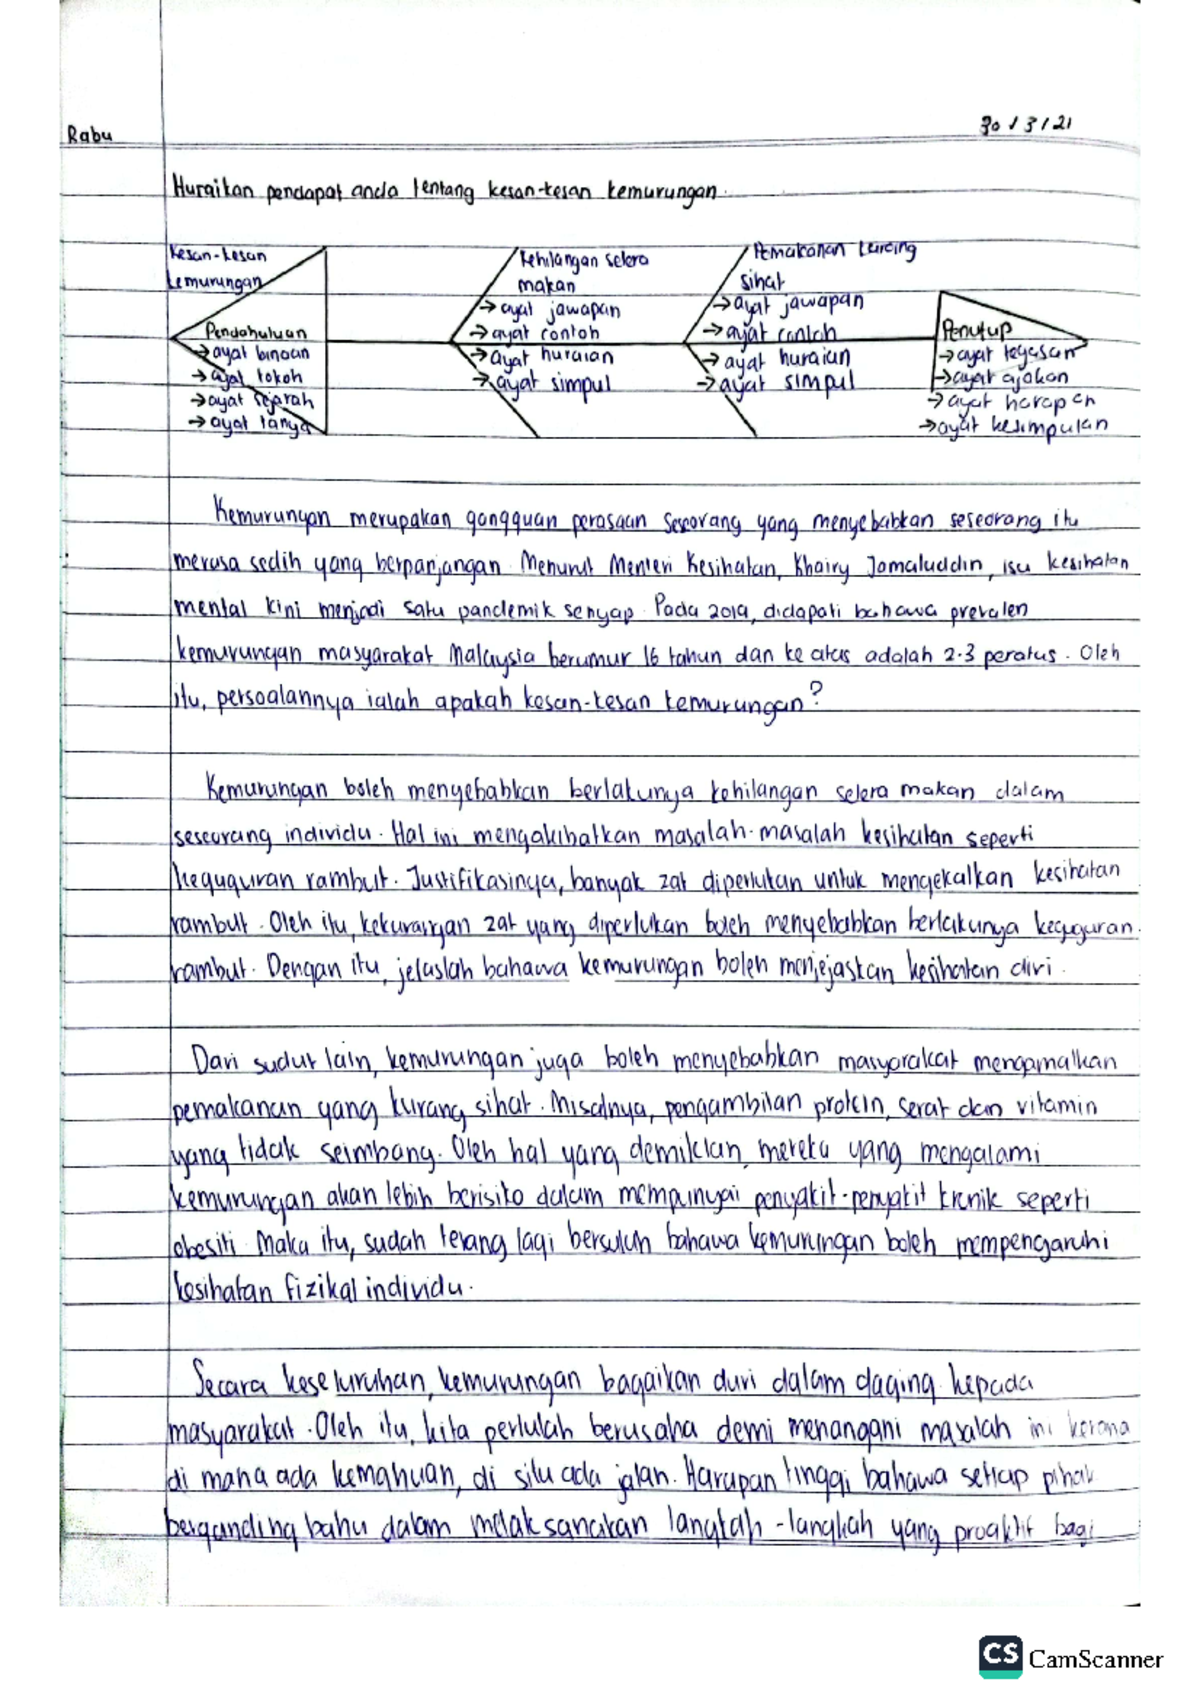 Rabu
30/3/21
Huraikan pendapat anda tentang kesan-kesan kemurungan.
Kesan-kesan
kemurungan
Pendahuluan
→ayat binaan
→ayat tokoh
→ayat sejarah
→ayat tanya
Kehilangan selera
makan
→ayat jawapan
→ayat contoh
→ayat huraian
→ayat simpul
Pemakanan kurang
sihat
→ayat jawapan
→ayat contoh
→ayat huraian
→ayat simpul
Penutup
→ayat tegasan
→ayat ajakan
→ayat harapan
→ayat kesimpulan
Kemurungan merupakan gangguan perasaan seseorang yang menyebabkan seseorang itu
merasa sedih yang berpanjangan. Menurut Menteri Kesihatan, Khairy Jamaluddin, isu kesihatan
mental kini menjadi satu pandemik senyap. Pada 2019, didapati bahawa prevalen
kemurungan masyarakat Malaysia berumur 16 tahun dan ke atas adalah 2.3 peratus. Oleh
itu, persoalannya ialah apakah kesan-kesan kemurungan?
Kemurungan boleh menyebabkan berlakunya kehilangan selera makan dalam
seseorang individu. Hal ini mengakibatkan masalah-masalah kesihatan seperti
keguguran rambut. Justifikasinya, banyak zat diperlukan untuk mengekalkan kesihatan
rambut. Oleh itu, kekurangan zat yang diperlukan boleh menyebabkan berlakunya keguguran
rambut. Dengan itu, jelaslah bahawa kemurungan boleh menjejaskan kesihatan diri.
Dari sudut lain, kemurungan juga boleh menyebabkan masyarakat mengamalkan
pemakanan yang kurang sihat. Misalnya, pengambilan protein, serat dan vitamin
yang tidak seimbang. Oleh hal yang demikian, mereka yang mengalami
kemurungan akan lebih berisiko dalam mempunyai penyakit-penyakit kronik seperti
obesiti. Maka itu, sudah terang lagi bersuluh bahawa kemurungan boleh mempengaruhi
kesihatan fizikal individu.
Secara keseluruhan, kemurungan bagaikan duri dalam daging kepada
masyarakat. Oleh itu, kita perlulah berusaha demi menangani masalah ini kerana
di mana ada kemahuan, di situ ada jalan. Harapan tinggi bahawa setiap pihak
berganding bahu dalam melaksanakan langkah-langkah yang proaktif bagi
CS CamScanner